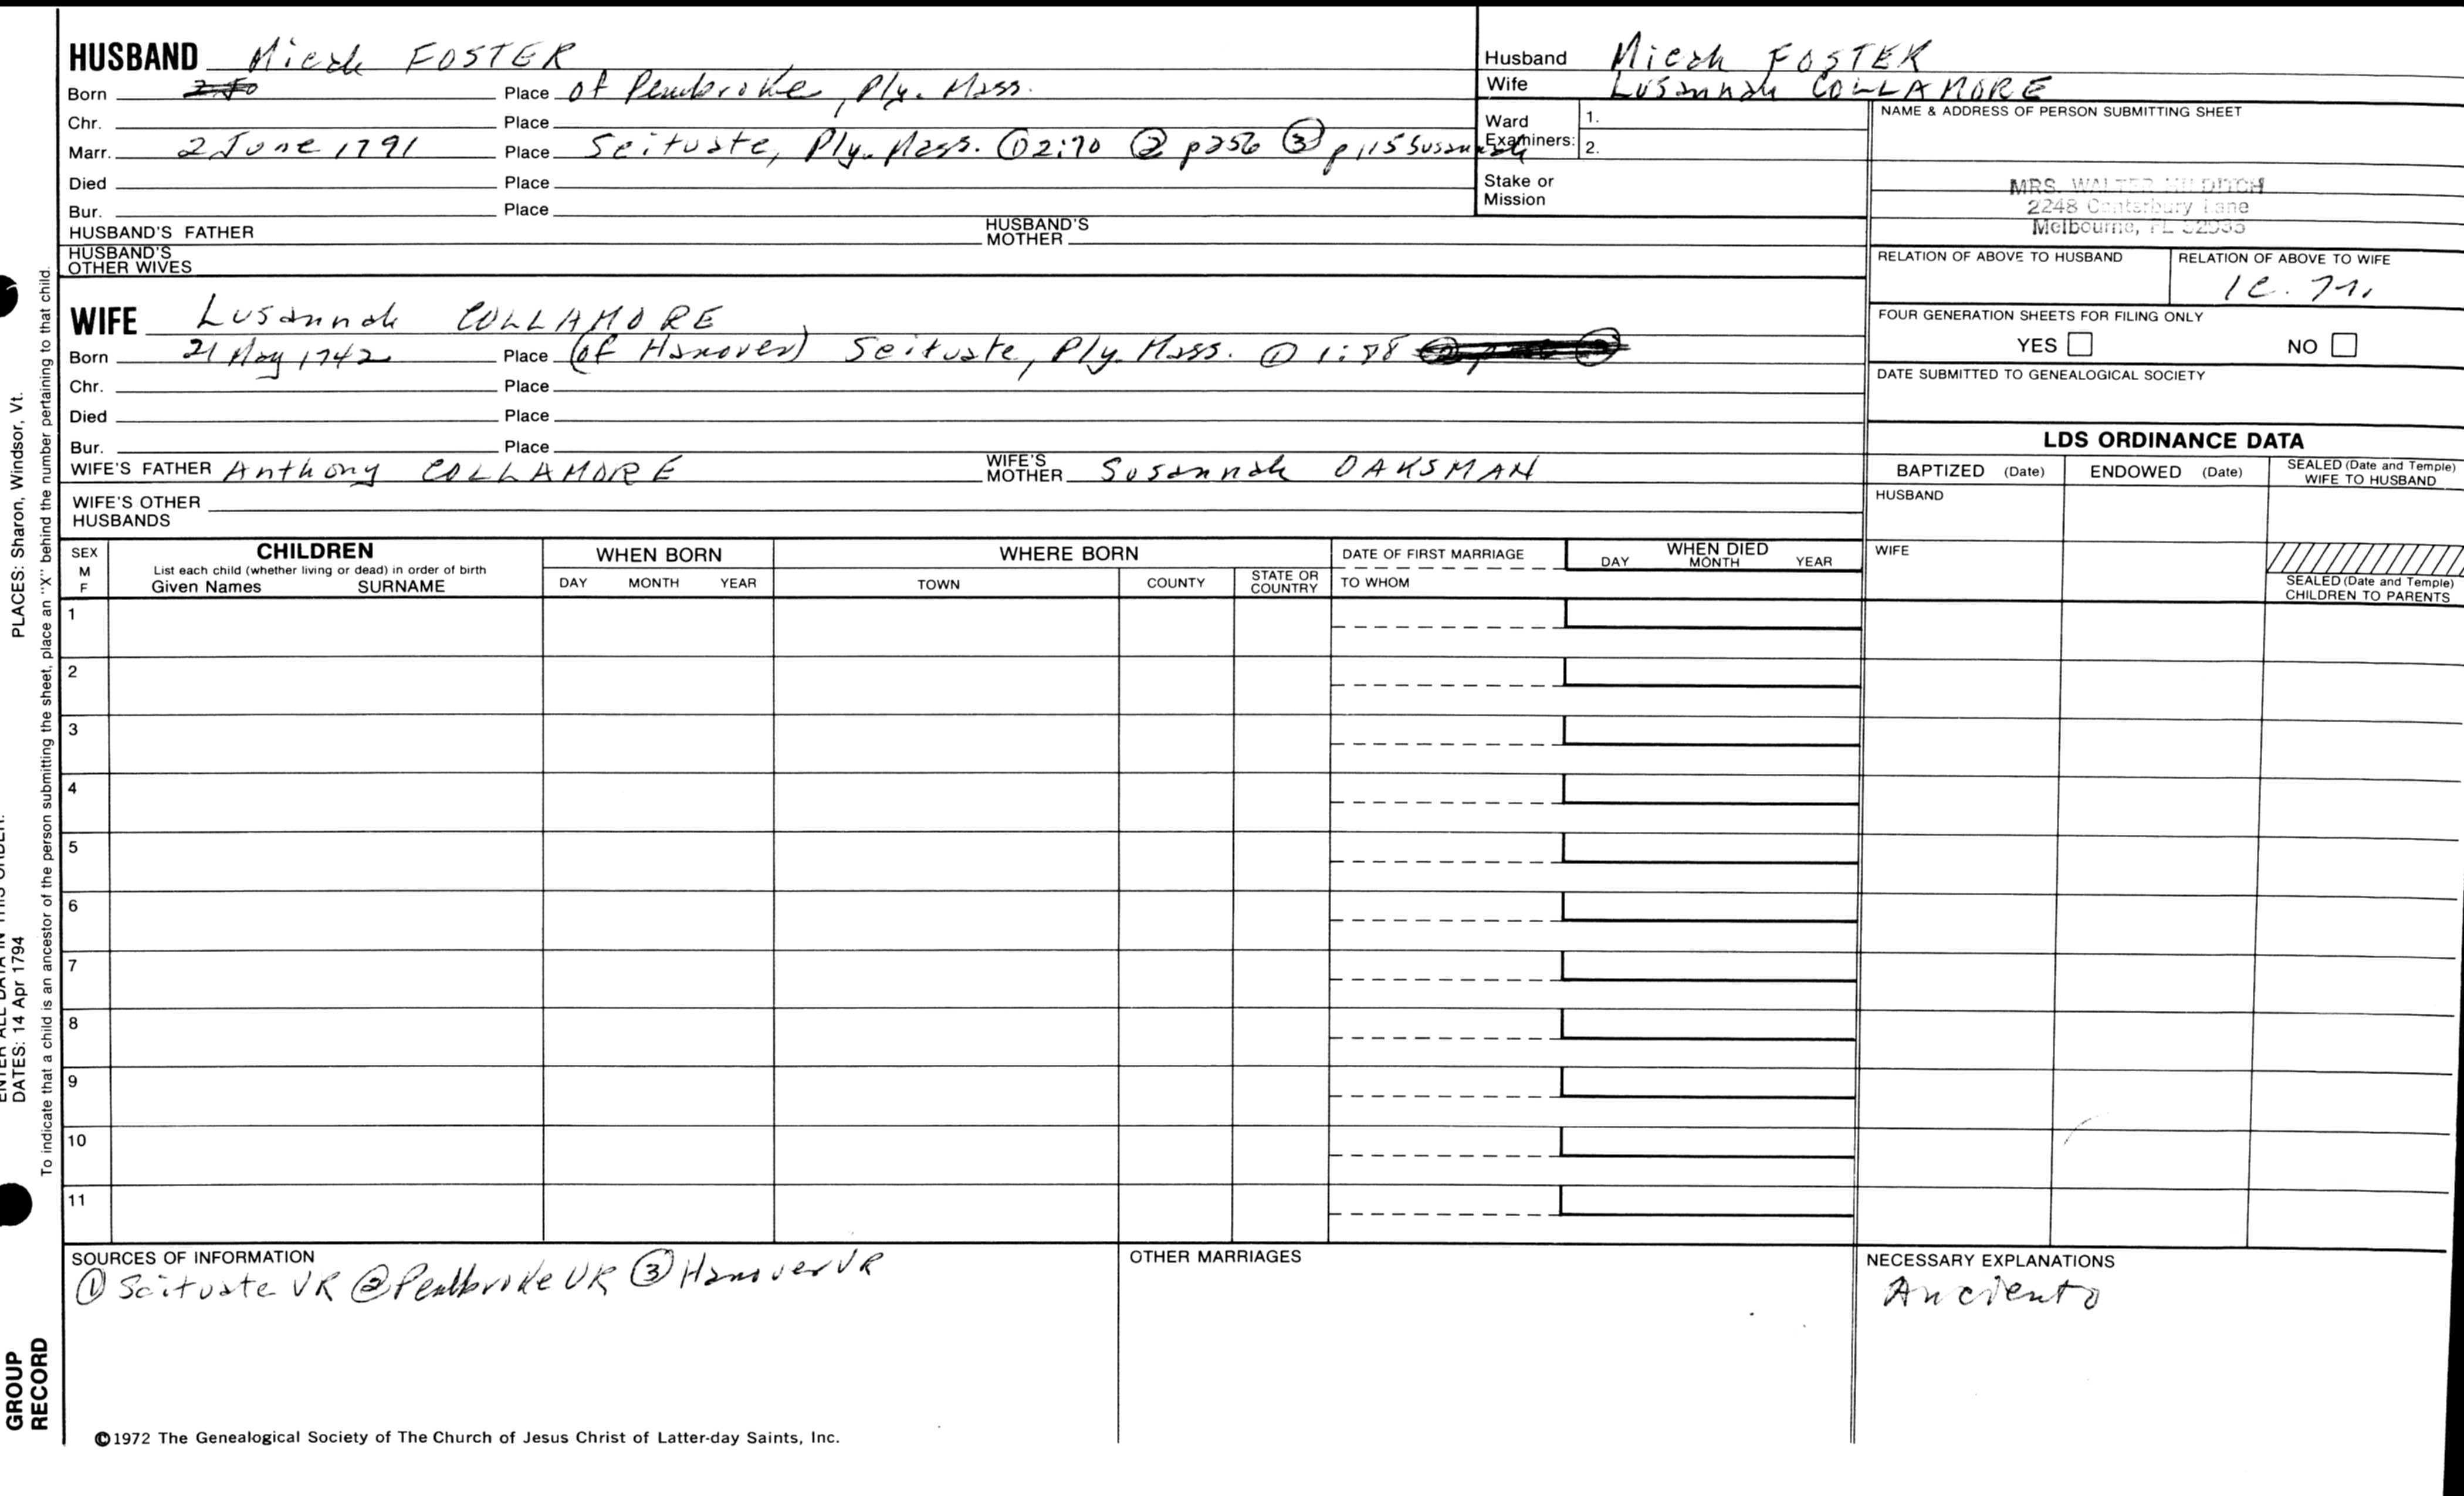 HUSBAND Micah FOSTER
Born Place of Pembroke, Ply. Mass.
Chr. Place
Marr. 2 June 1791 Place Scituate, Ply. Mass. ① 2:70 ② p256 ③ p115 Susannah
Died Place
Bur. Place
HUSBAND'S FATHER HUSBAND'S MOTHER
HUSBAND'S OTHER WIVES
Husband Micah FOSTER
Wife Lusannah COLLAMORE
Ward Examiners: 1.
2.
Stake or Mission
NAME & ADDRESS OF PERSON SUBMITTING SHEET
MRS. WALTER HILDITCH
2248 Canterbury Lane
Melbourne, FL
RELATION OF ABOVE TO HUSBAND RELATION OF ABOVE TO WIFE
1c.
FOUR GENERATION SHEETS FOR FILING ONLY
YES NO
DATE SUBMITTED TO GENEALOGICAL SOCIETY
WIFE Lusannah COLLAMORE
Born 21 May 1742 Place (of Hanover) Scituate, Ply. Mass. ① 1:88
Chr. Place
Died Place
Bur. Place
WIFE'S FATHER Anthony COLLAMORE WIFE'S MOTHER Susannah OAKSMAN
WIFE'S OTHER HUSBANDS
LDS ORDINANCE DATA
BAPTIZED (Date) ENDOWED (Date) SEALED (Date and Temple) WIFE TO HUSBAND
HUSBAND
WIFE
SEALED (Date and Temple) CHILDREN TO PARENTS
SEX M F
CHILDREN
List each child (whether living or dead) in order of birth
Given Names SURNAME
WHEN BORN
DAY MONTH YEAR
WHERE BORN
TOWN COUNTY STATE OR COUNTRY
DATE OF FIRST MARRIAGE
TO WHOM
WHEN DIED
DAY MONTH YEAR
1
2
3
4
5
6
7
8
9
10
11
SOURCES OF INFORMATION
① Scituate VR ② Pembroke VR ③ Hanover VR
OTHER MARRIAGES
NECESSARY EXPLANATIONS
©1972 The Genealogical Society of The Church of Jesus Christ of Latter-day Saints, Inc.
PLACES: Sharon, Windsor, Vt.
DATES: 14 Apr 1794
To indicate that a child is an ancestor of the person submitting the sheet, place an "X" behind the number pertaining to that child.
GROUP
RECORD